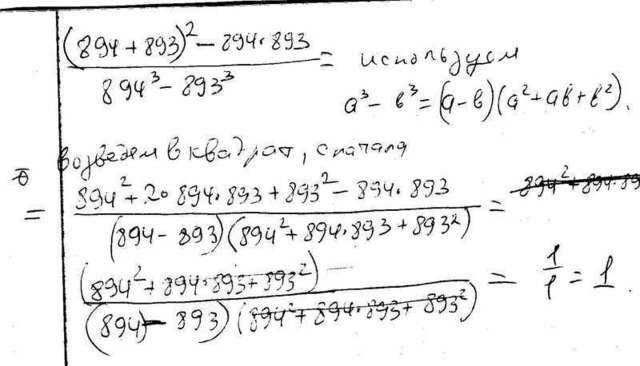 ((894 + 893)² − 894·893) / (894³ − 893³) = используем
a³ − b³ = (a−b)(a²+ab+b²).
возведем в квадрат, сначала
= (894² + 2·894·893 + 893² − 894·893) / ((894 − 893)(894² + 894·893 + 893²)) =
(894² + 894·893 + 893²) / ((894 − 893)(894² + 894·893 + 893²)) = 1/1 = 1.